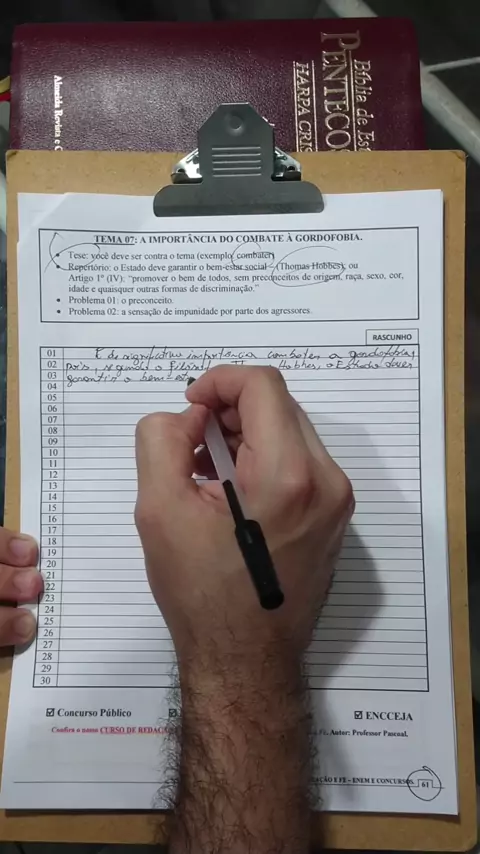 Bíblia de Est
PENTECOS
HARPA CRIS
Almeida Revista e C
TEMA 07: A IMPORTÂNCIA DO COMBATE À GORDOFOBIA.
• Tese: você deve ser contra o tema (exemplo: combater)
• Repertório: o Estado deve garantir o bem-estar social – (Thomas Hobbes); ou
Artigo 1º (IV): “promover o bem de todos, sem preconceitos de origem, raça, sexo, cor,
idade e quaisquer outras formas de discriminação.”
• Problema 01: o preconceito.
• Problema 02: a sensação de impunidade por parte dos agressores.
RASCUNHO
01 É de significativa importância combater a gordofobia,
02 pois, segundo o Filósofo Hobbes, o Estado deve
03 garantir o bem-est
04
05
06
07
08
09
10
11
12
13
14
15
16
17
18
19
20
21
22
23
24
25
26
27
28
29
30
☑ Concurso Público ☑ ☑ ENCCEJA
Confira o nosso CURSO DE REDAÇ Autor: Professor Pascoal.
AÇÃO E FÉ – ENEM E CONCURSOS 61